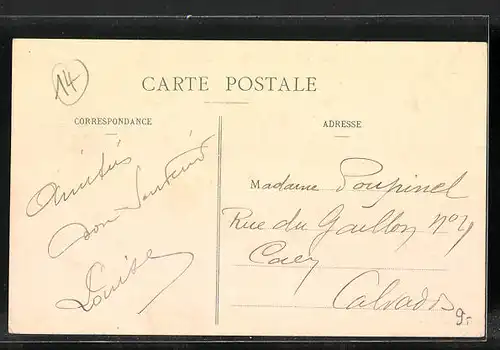 14
CARTE POSTALE
CORRESPONDANCE
Amitiés
bon Souvenir
Louise
ADRESSE
Madame Poupinel
Rue du Gaillon No
Caen
Calvados
9.-